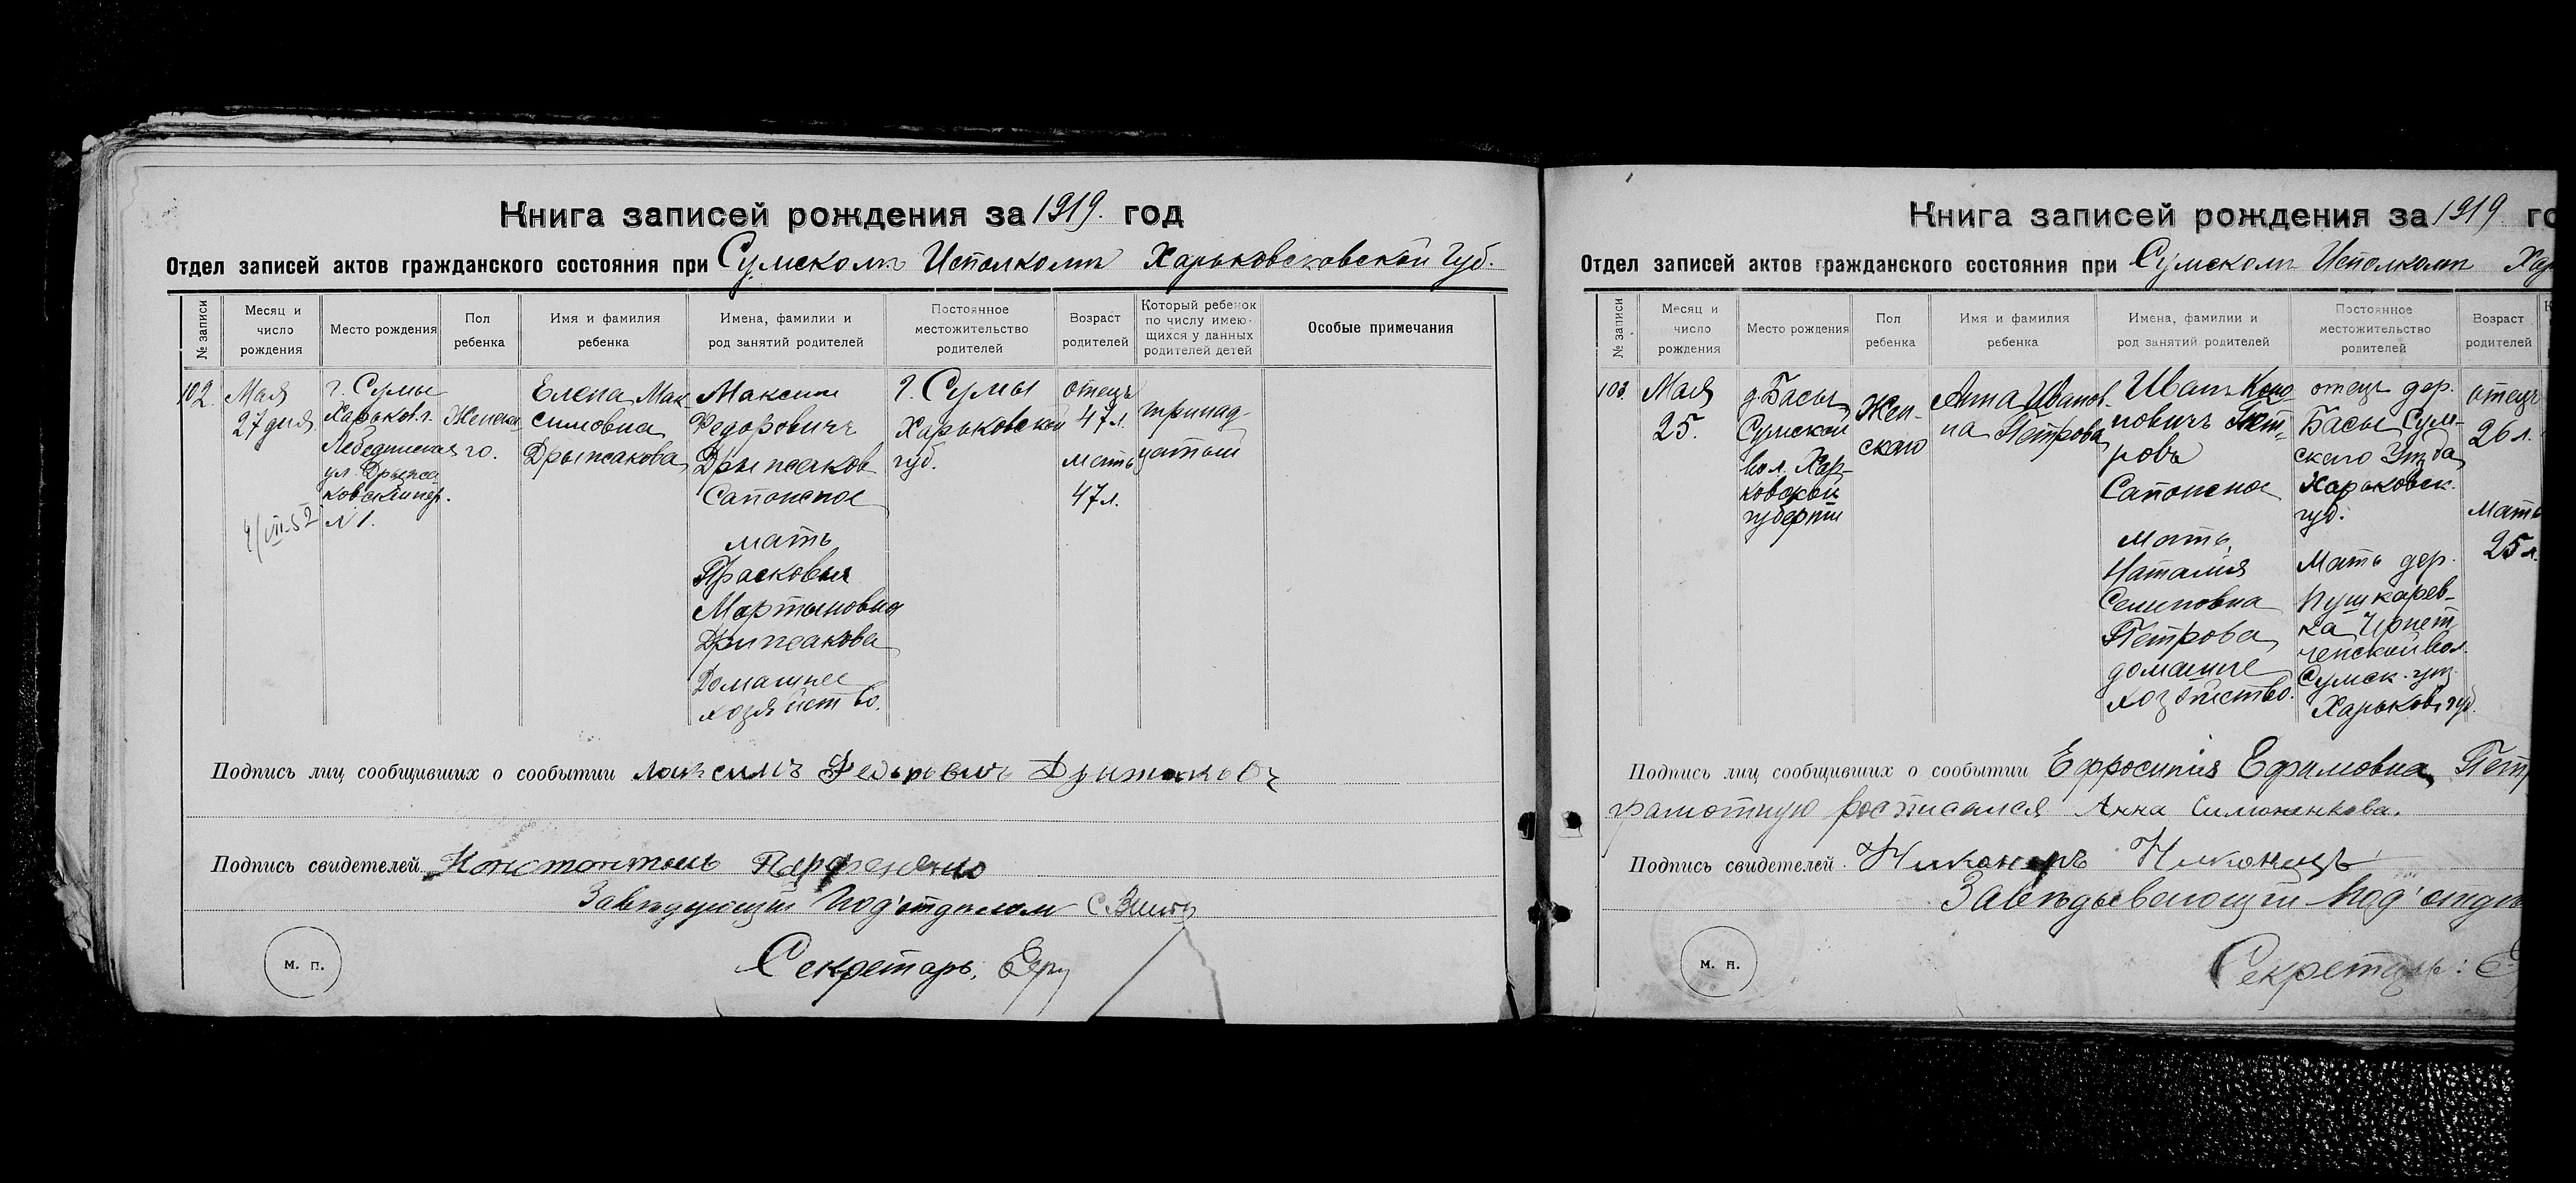 Книга записей рождения за 1919. год
Отдел записей актов гражданского состояния при Сумском Исполкоме Харьковсковской Губ.
№ записи
Месяц и число рождения
Место рождения
Пол ребенка
Имя и фамилия ребенка
Имена, фамилии и род занятий родителей
Постоянное местожительство родителей
Возраст родителей
Который ребенок по числу имеющихся у данных родителей детей
Особые примечания
102.
Мая
27 дня
4/VII-52
г. Сумы
Харьков. г.
Лебединская
ул. Дрыжа-
ковский пер.
№ 1.
Женска-
го.
Елена Мак
симовна
Дрыжакова
Максим
Федорович
Дрыжаков
Сапожное
мать
Прасковья
Мартыновна
Дрыжакова
Домашнее
хозяйство.
г. Сумы
Харьковской
губ.
отецъ
47 л.
мать
47 л.
тринад-
цатый
Подпись лиц сообщивших о сообытии Максимъ Федоровичъ Дрыжаковъ
Подпись свидетелей
Завѣдующий Под'отделом
Секретарь,
м. п.
Книга записей рождения за 1919 го
Отдел записей актов гражданского состояния при Сумском Исполкоме Хар
№ записи
Месяц и число рождения
Место рождения
Пол ребенка
Имя и фамилия ребенка
Имена, фамилии и род занятий родителей
Постоянное местожительство родителей
Возраст родителей
103.
Мая
25.
д. Басы
Сумской
вол. Харь-
ковской
губернии
Жен-
скаго
Анна Иванов-
на Петрова
Иван Коно
новичъ Пет-
ровъ
Сапожное
Мать
Наталия
Семеновна
Петрова
домашнее
хозяйство.
отецъ дер.
Басы Сум-
скаго Уезда
Харьковск.
губ.
Мать дер.
Пушкарев-
ка
вол.
Сумск. уез.
Харьков. губ.
отецъ
26 л.
Мать
25 л.
Подпись лиц сообщивших о сообытии Ефросиния Ефимовна Петр
грамотную росписался Анна Симоненкова.
Подпись свидетелей. Никаноръ
Завѣдывающий Под'отдел
Секретарь:
м. п.